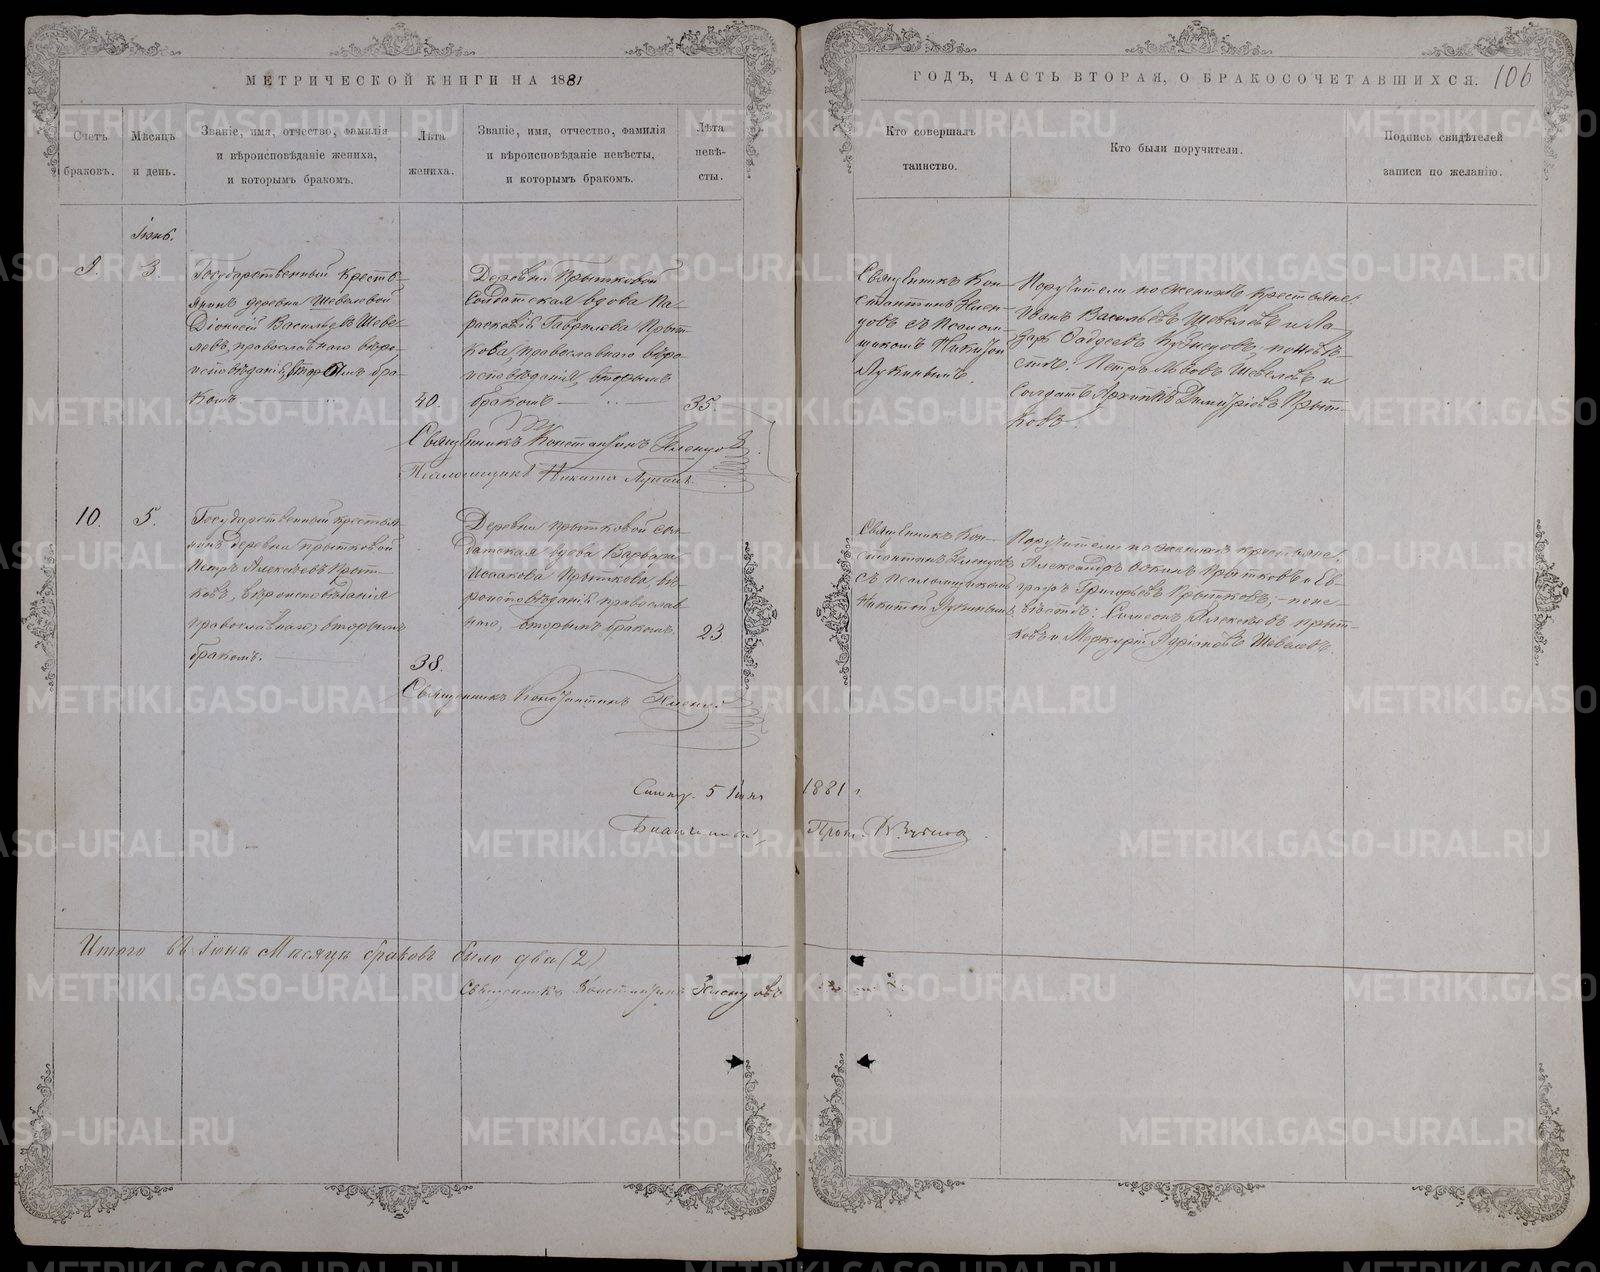 МЕТРИЧЕСКОЙ КНИГИ НА 1881
ГОДЪ, ЧАСТЬ ВТОРАЯ, О БРАКОСОЧЕТАВШИХСЯ. 106
Счетъ
браковъ.
Мѣсяцъ
и день.
Званіе, имя, отчество, фамилія
и вѣроисповѣданіе жениха,
и которымъ бракомъ.
Лѣта
жениха.
Званіе, имя, отчество, фамилія
и вѣроисповѣданіе невѣсты,
и которымъ бракомъ.
Лѣта
невѣ-
сты.
Кто совершалъ
таинство.
Кто были поручители.
Подпись свидѣтелей
записи по желанію.
Іюнь.
9.
3.
Государственный кресть-
янинъ деревни Шевелевой
Діонисій Васильевъ Шеве-
левъ, православнаго вѣро-
исповѣданія, вторымъ бра-
комъ.
40.
Деревни Прытковой
солдатская вдова Па-
расковія Гаврилова Прыт-
кова, православнаго вѣро-
исповѣданія, вторымъ
бракомъ
35
Священникъ Кон-
стантинъ
цовъ съ Псалом-
щикомъ Никитой
Лукинымъ.
Поручители по женихѣ крестьяне:
Иванъ Васильевъ Шевелевъ и Ла-
зарь Фадѣевъ Кузнецовъ; по невѣ-
стѣ: Петръ Львовъ Шевелевъ и
солдатъ Архипъ Димитріевъ Прыт-
ковъ.
Священникъ Константинъ
Псаломщикъ Никита Лукинъ
10.
5.
Государственный крестья-
нинъ деревни Прытковой
Петръ Алексѣевъ Прыт-
ковъ, вѣроисповѣданія
православнаго, вторымъ
бракомъ.
38.
Деревни Прытковой сол-
датская вдова Варвара
Исаакова Прыткова, вѣ-
роисповѣданія православ-
наго, вторымъ бракомъ.
23
Священникъ Кон-
стантинъ
съ псаломщикомъ
Никитой Лукинымъ.
Поручители по женихѣ крестьяне:
Александръ Прытковъ и Ев-
графъ Григорьевъ Прытковъ; по не-
вѣстѣ: Симеонъ Алексѣевъ Прыт-
ковъ и Меркурій Шевелевъ.
Священникъ Константинъ
5 Іюня 1881 г.
Прот.
Итого въ Іюнѣ мѣсяцѣ браковъ было два (2)
Священникъ Константинъ
METRIKI.GASO-URAL.RU